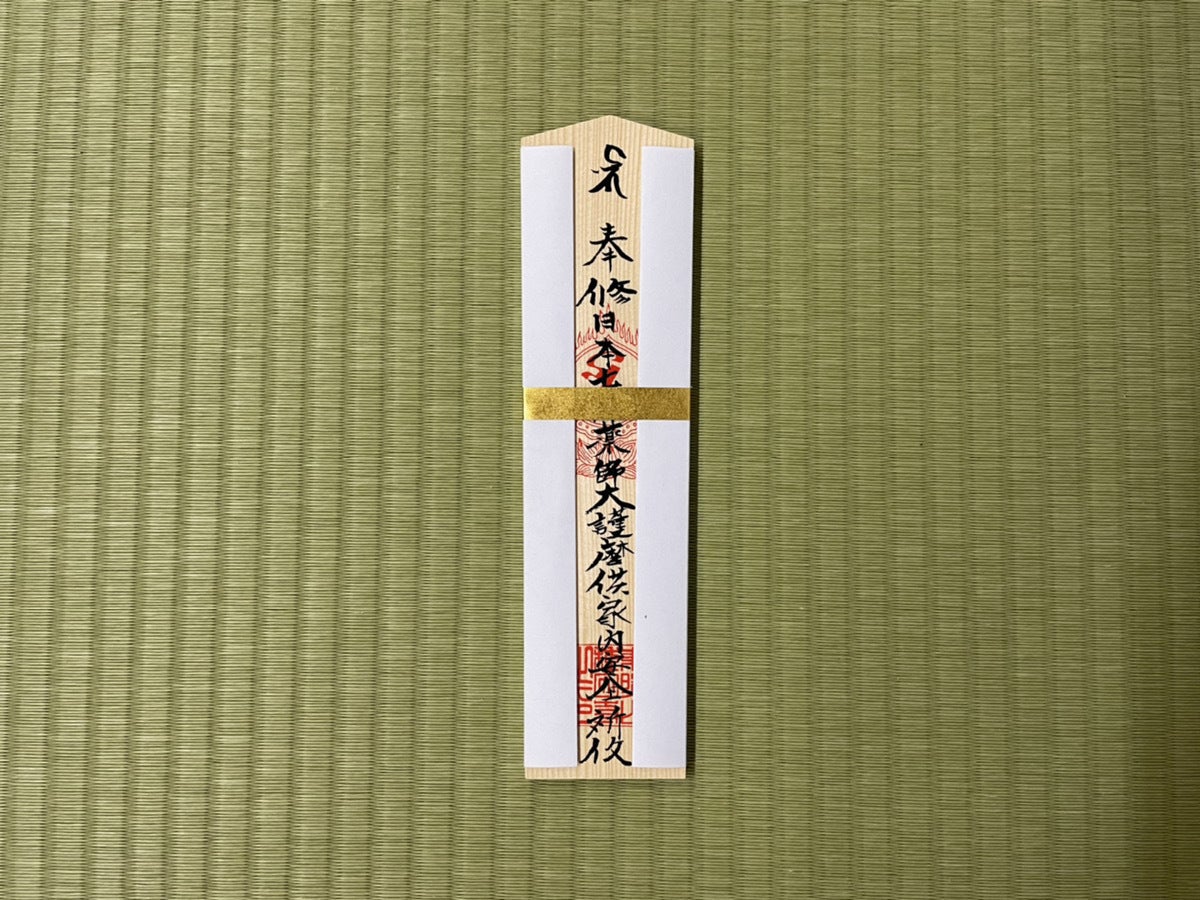 奉修日本七薬師大護摩供家内安全祈攸